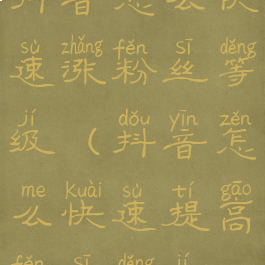 抖音怎么快
sù zhǎng fěn sī děng
速涨粉丝等
jí dǒu yīn zěn
级（抖音怎
me kuài sù tí gāo
么快速提高
fěn sī děng jí